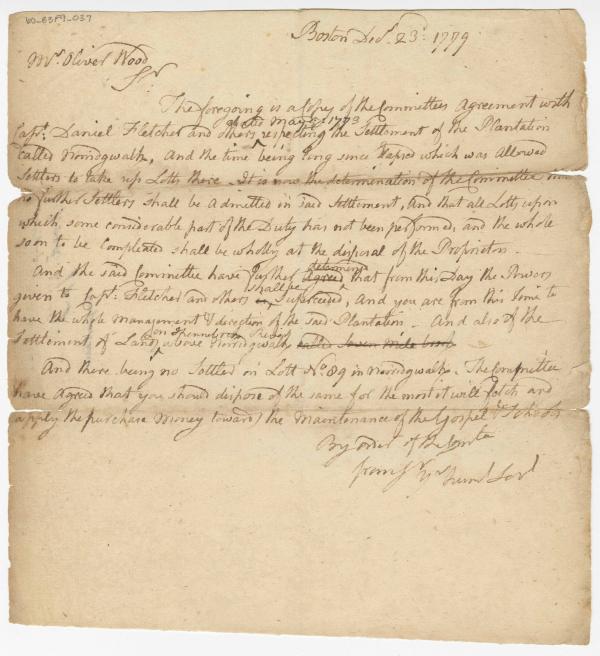 60-83F9-037
Boston Decr. 23d. 1779
Mr. Oliver Wood
Sr
The foregoing is a Copy of the Committees Agreement with
dated May 1773
Capt. Daniel Fletcher and others respecting the Settlement of the Plantation
Called Norridgwalk, And the time being long since Elapsed which was allowed
Settlers to take up Lotts there. It is now the determination of the Committee
no further Settlers shall be admitted in said Settlement, And that all Lotts upon
which some considerable part of the Duty has not been performed, and the whole
soon to be Compleated shall be wholly at the disposal of the Proprietors.
determined
And the said Committee have further Agreed that from this Day the Powers
shall be
given to Capt. Fletcher and others is Superceeded, And you are from this time to
have the whole management & direction of the said Plantation. And also of the
on Kennebeck River
Settlement of Lands above Norridgwalk called Seven mile brook
And there being no Settler on Lott No. 89 in Norridgwalk. The Committee
have Agreed that you should dispose of the same for the most it will fetch and
apply the purchase Money towards the Maintenance of the Gospel & Schools
By order of the Comte
from Sr. Yr. Humb Sert